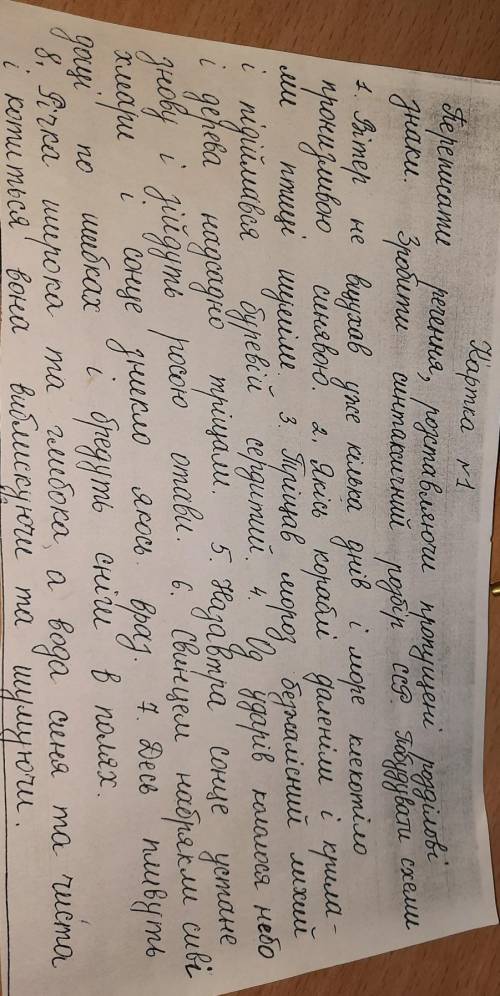 Картка №1
Переписати речення, розставляючи пропущені розділові
знаки. Зробити синтаксичний розбір ССР. Побудувати схеми
1. Вітер не вщухав уже кілька днів і море клекотіло
пронизливою синявою. 2. Якісь кораблі даленіли і крила-
ми птиці шуміли. 3. Тріщав мороз безжалісний лихий
і підіймався буревій сердитий. 4. Од ударів кололося небо
і дерева надсадно тріщали. 5. Назавтра сонце устане
знову і зійдуть росою отави. 6. Свинцем набрякли сиві
хмари і сонце зникло якось враз. 7. Десь пливуть
дощі по шибках і бредуть сніги в полях.
8. Річка широка та глибока, а вода синя та чиста
і котиться вона виблискуючи та шумуючи.